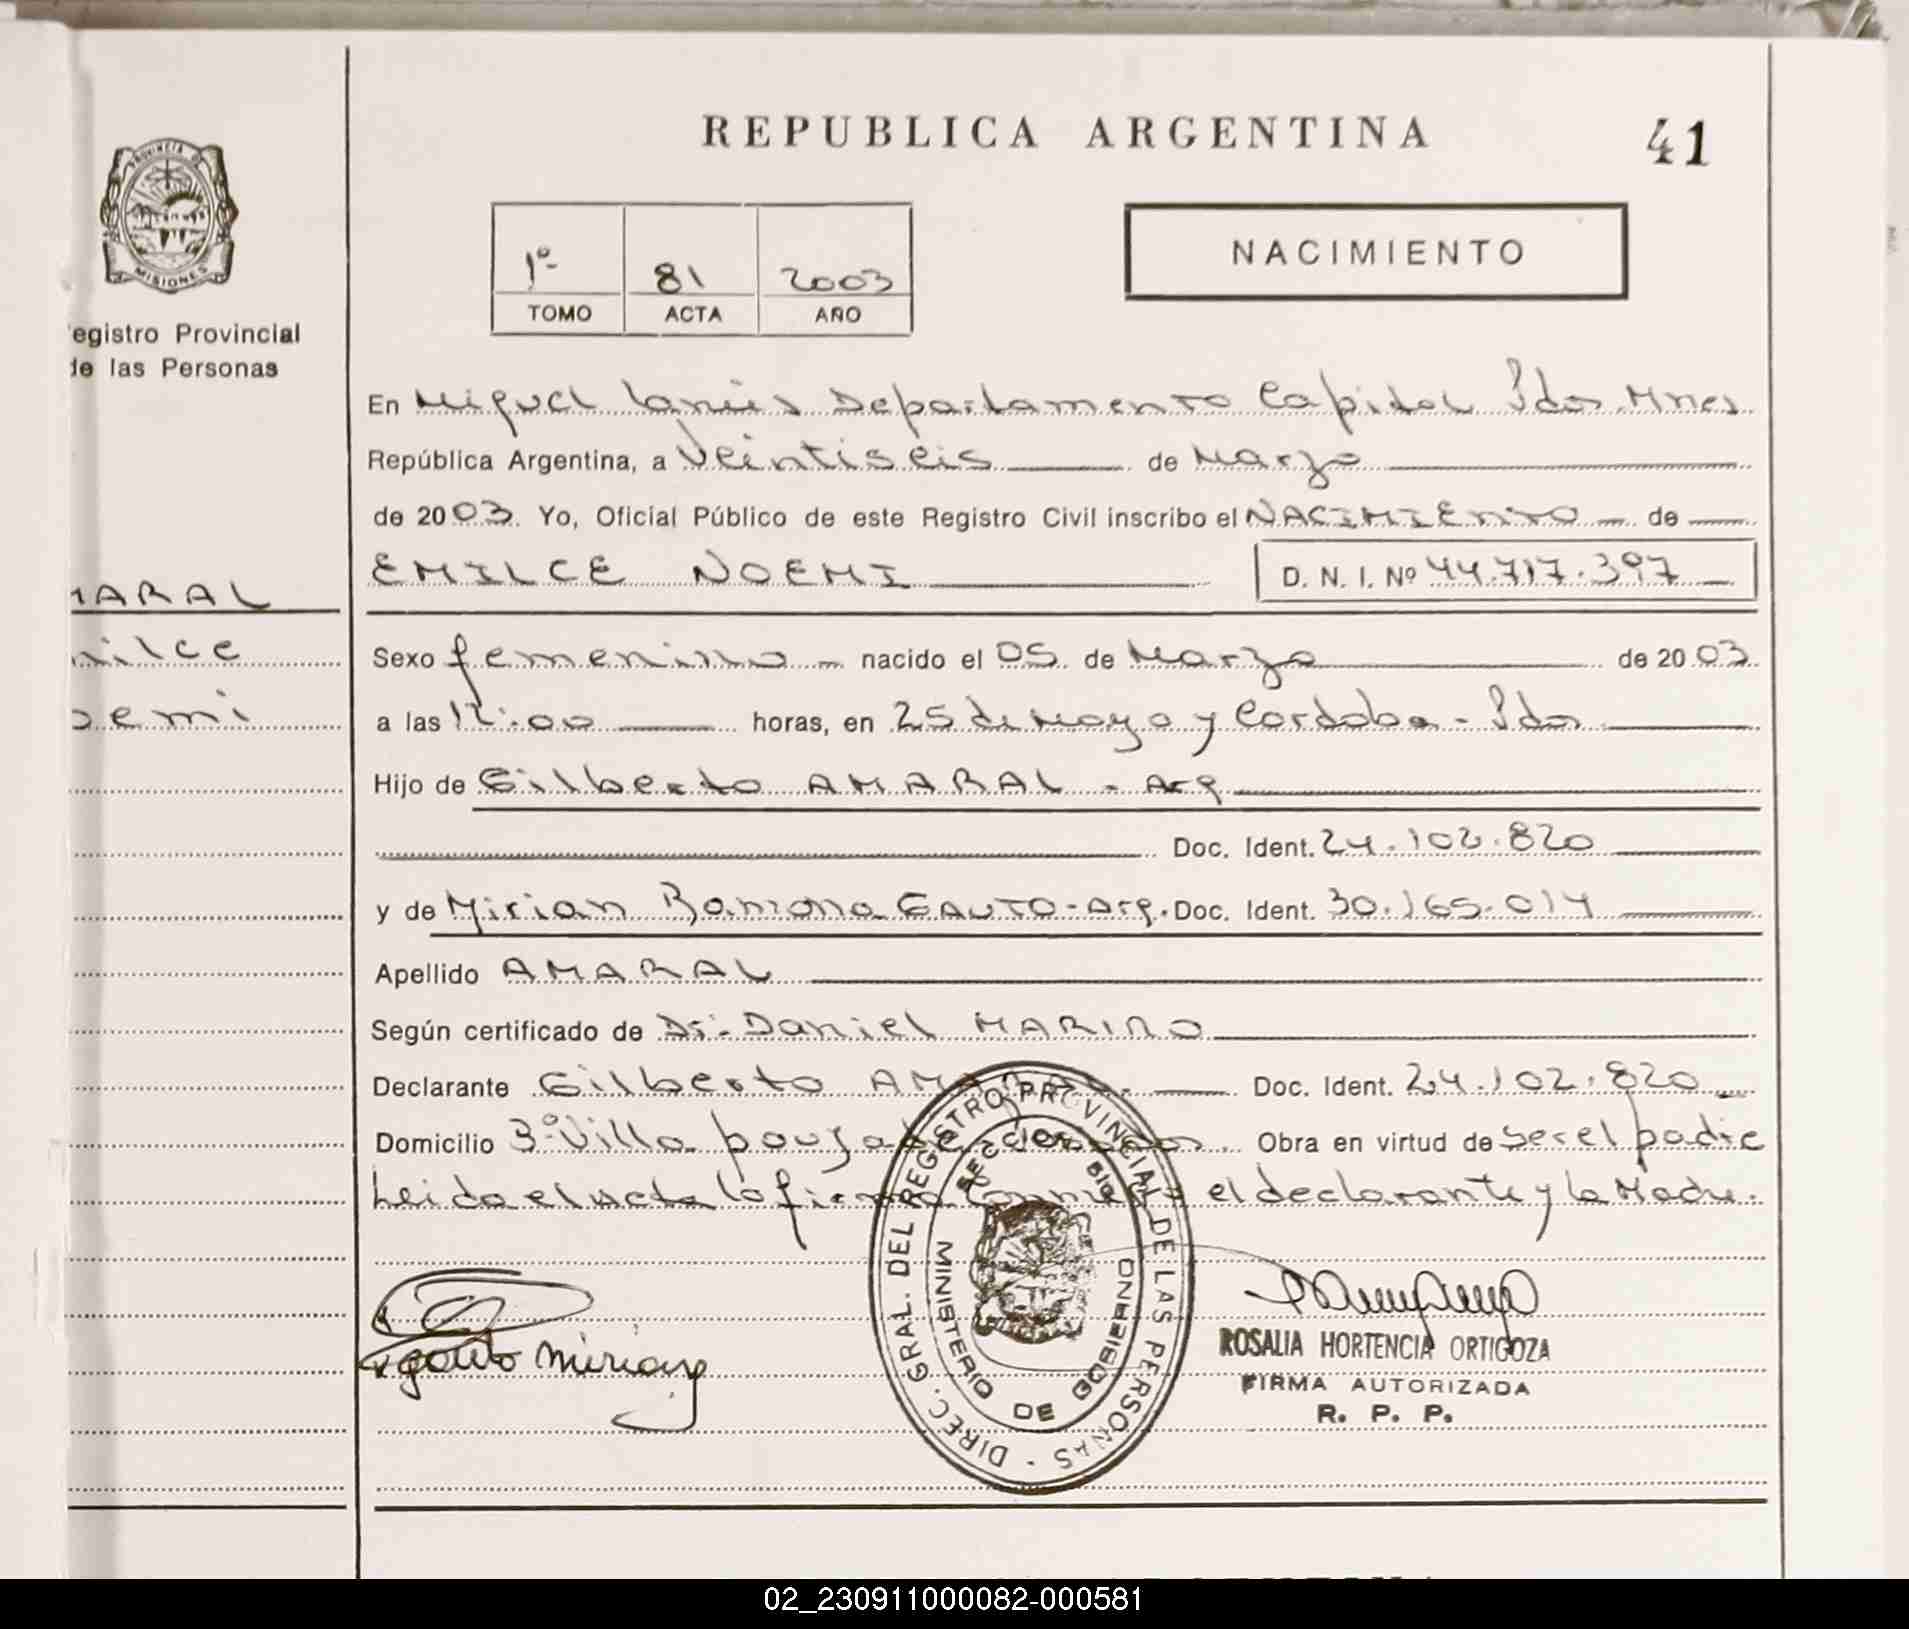 REPUBLICA ARGENTINA
41
1º 81 2003
TOMO ACTA AÑO
NACIMIENTO
PROVINCIA DE
MISIONES
egistro Provincial
de las Personas
MARAL
milce
oemi
En Miguel Lanús Departamento Capital Pdas. Mnes
República Argentina, a Veintiseis de Marzo
de 2003. Yo, Oficial Público de este Registro Civil inscribo el NACIMIENTO de
EMILCE NOEMI D. N. I. Nº 44.717.397
Sexo femenino nacido el 05 de Marzo de 2003
a las 12:00 horas, en 25 de Mayo y Cordoba - Pdas
Hijo de Gilberto AMARAL - Arg
Doc. Ident. 24.102.820
y de Mirian Ramona GAUTO - Arg. Doc. Ident. 30.165.014
Apellido AMARAL
Según certificado de Dr. Daniel MARINO
Declarante Gilberto AMARAL Doc. Ident. 24.102.820
Domicilio 3º Villa Obra en virtud de ser el padre
Leida el Acta la firma conmigo el declarante y la Madre.
gauto mirian
DIREC. GRAL. DEL REGISTRO PROVINCIAL DE LAS PERSONAS -
MINISTERIO DE GOBIERNO
ROSALIA HORTENCIA ORTIGOZA
FIRMA AUTORIZADA
R. P. P.
02_230911000082-000581